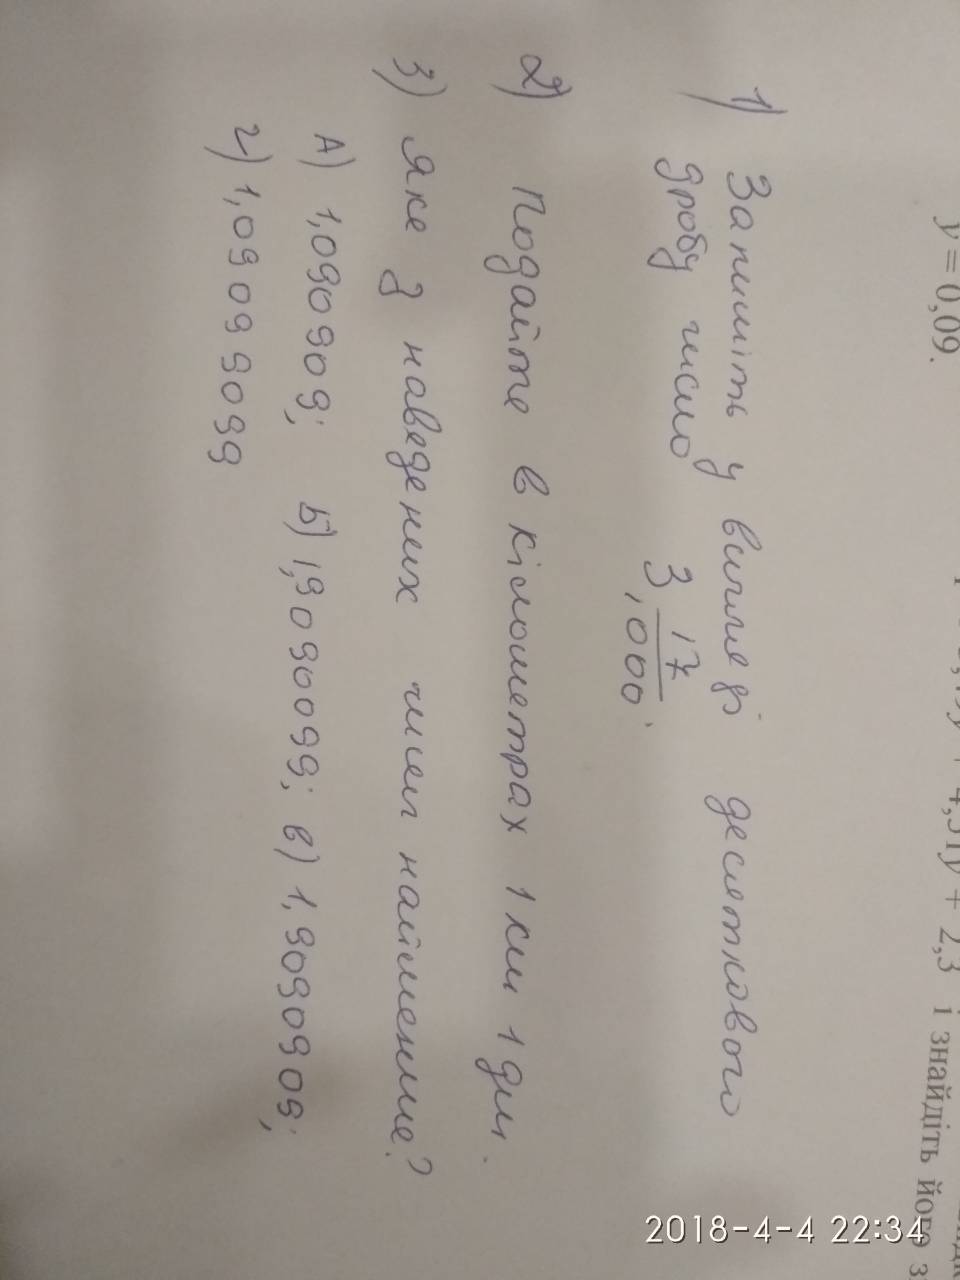 у = 0,09.
4,51у + 2,3 і знайдіть його з
1) Запишіть у вигляді десяткового
дробу число 3 17/1000.
2) Подайте в кілометрах 1 км 1 дм.
3) Яке з наведених чисел найменше?
А) 1,090909; Б) 1,9090099; В) 1,9090909;
Г) 1,09099099
2018-4-4 22:34